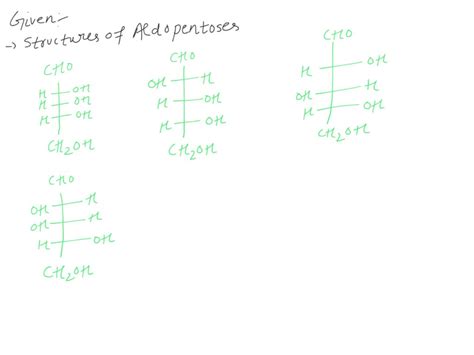 Given:-
→ Structures of Aldopentoses
CHO
H OH
H OH
H OH
CH2OH
CHO
OH H
H OH
H OH
CH2OH
CHO
H OH
OH H
H OH
CH2OH
CHO
OH H
OH H
H OH
CH2OH